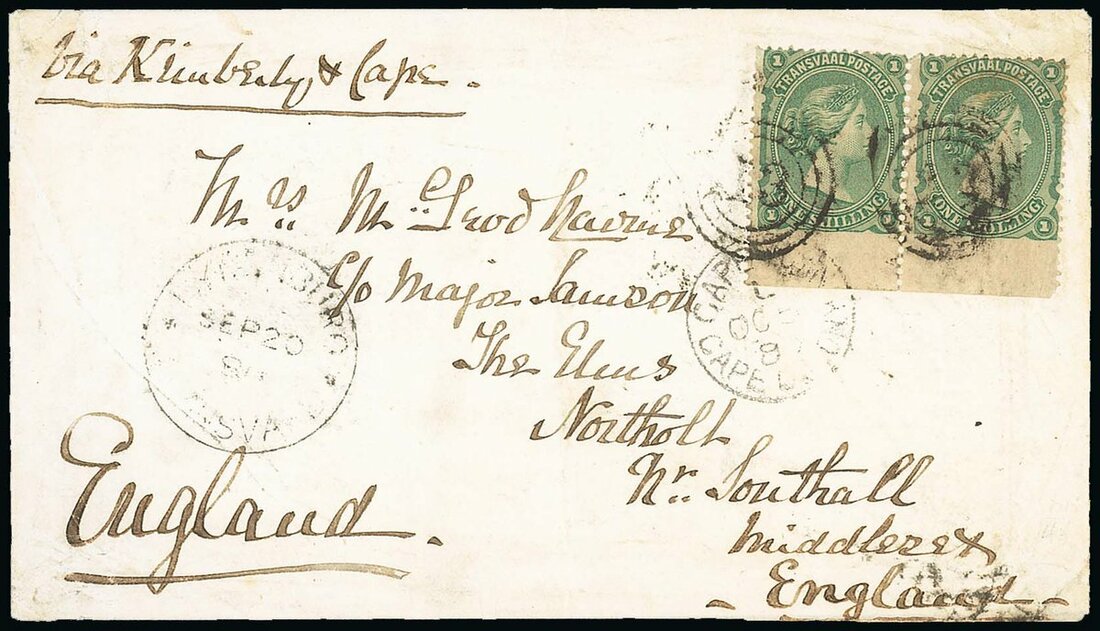 Via Kimberly & Cape.
1 TRANSVAAL POSTAGE 1
1 ONE SHILLING 1
1 TRANSVAAL POSTAGE 1
1 ONE SHILLING 1
Mrs. McLeod Nairne
c/o Major Samson
The Elms
Northolt
Nr. Southall
Middlesex
England
England.
SEP 20
CAPE